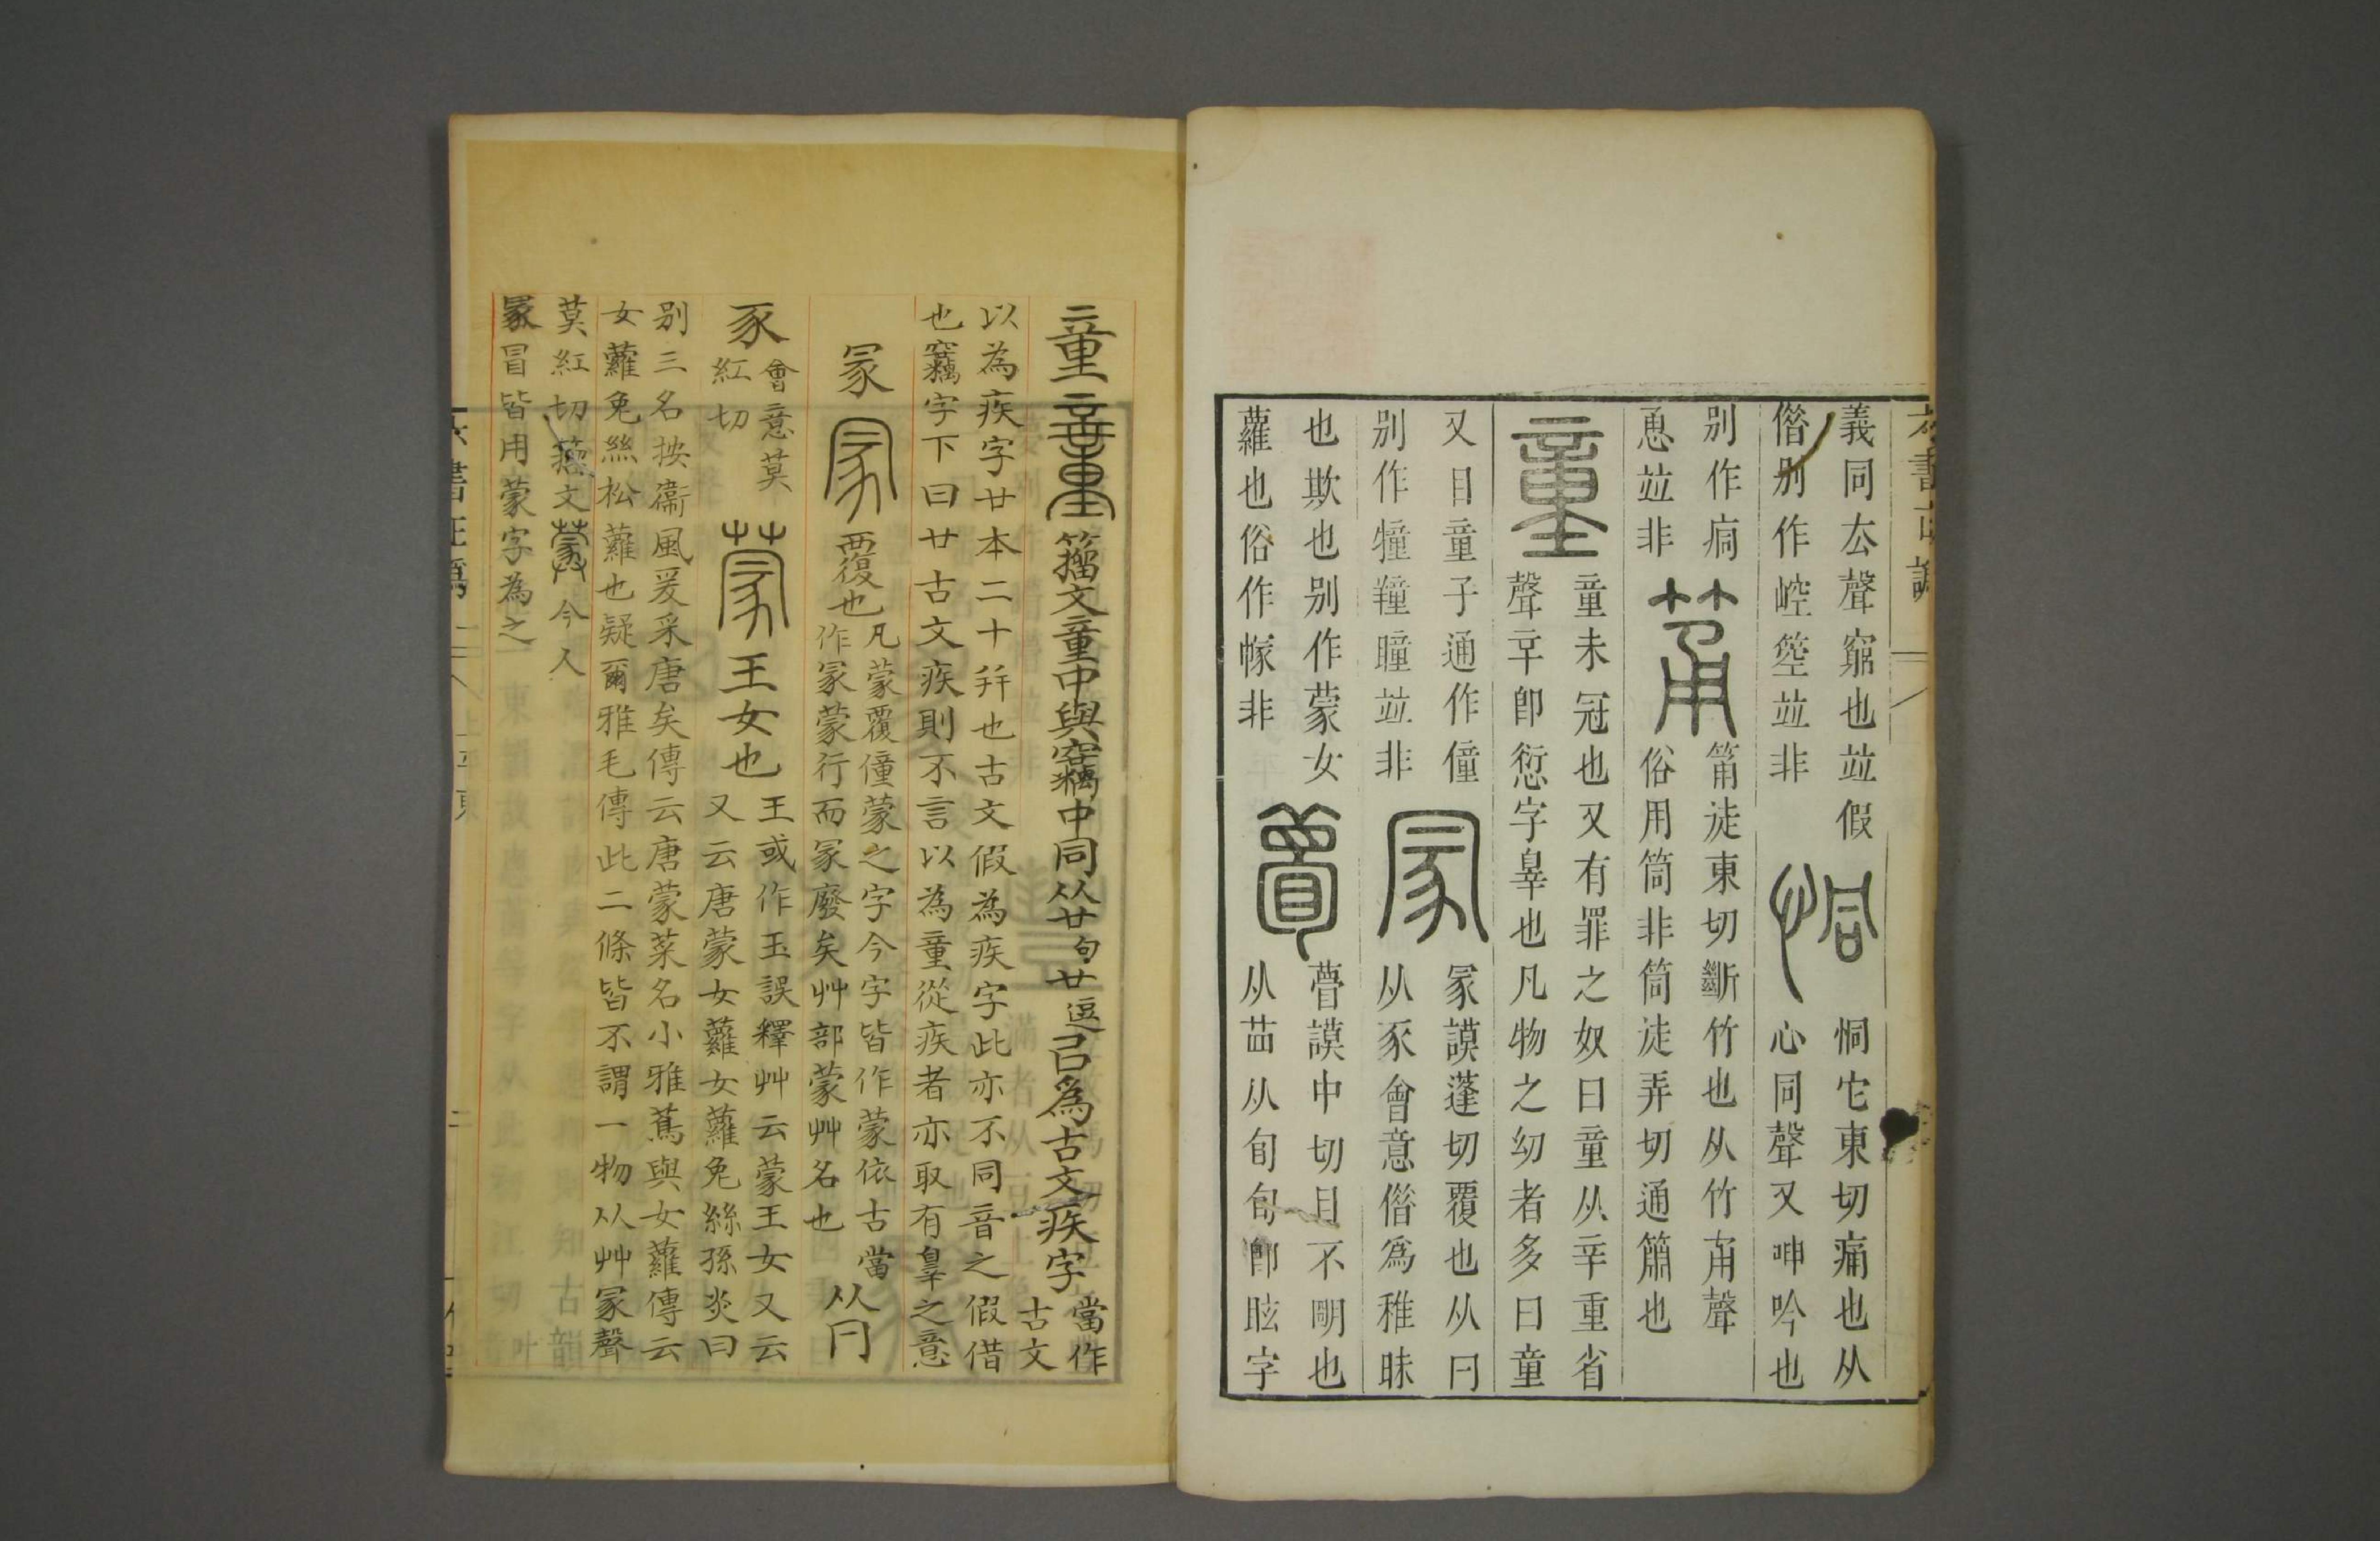 義同厺聲竆也竝假
僭别作崆箜竝非
恫它東切痛也从
心同聲又呻吟也
别作痌
恿竝非
筩徒東切斷竹也从竹甬聲
俗用筒非筒徒弄切通簫也
童
童未冠也又有罪之奴曰童从䇂重省
聲䇂卽愆字辠也凡物之幼者多曰童
又目童子通作僮
别作犝羵瞳竝非
冡謨蓬切覆也从冃
从豕會意僭爲稚昧
也欺也别作蒙女
蘿也俗作幪非
瞢謨中切目不朙也
从苜从旬旬卽眩字
童 籀文童中與竊中同从廿句廿逗㠯爲古文疾字 當作
古文
以為疾字廿本二十幷也古文假為疾字此亦不同音之假借
也竊字下曰廿古文疾則不言以為童從疾者亦取有辠之意
冡 覆也 凡蒙覆僮蒙之字今字皆作蒙依古當
作冡蒙行而冡廢矣艸部蒙艸名也 从冃
豕 會意莫
紅切
蒙 王女也 王或作玉誤釋艸云蒙王女又云
又云唐蒙女蘿女蘿兔絲孫炎曰
别三名按衞風爰采唐矣傳云唐蒙菜名小雅蔦與女蘿傳云
女蘿兔絲松蘿也疑爾雅毛傳此二條皆不謂一物从艸冡聲
莫紅切籀文 今人
冡冒皆用蒙字為之